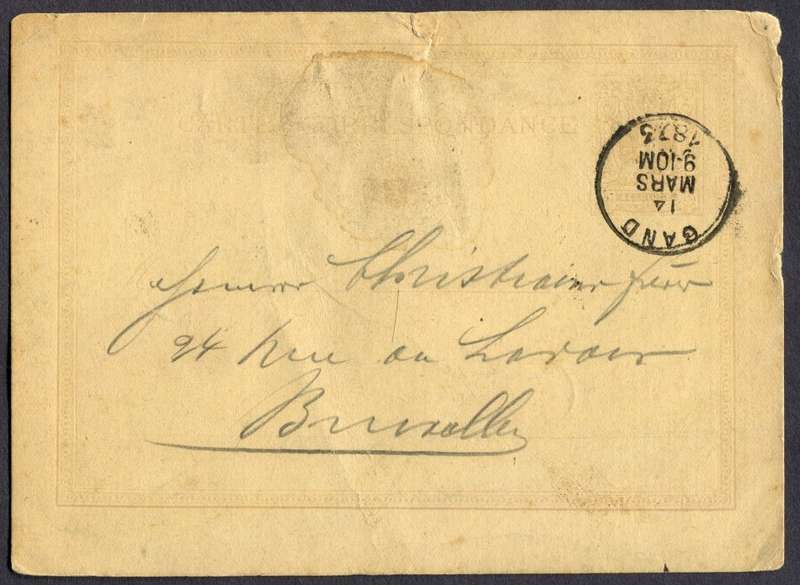 CARTE CORRESPONDANCE
GAND
14
MARS
9-10M
1873
Christiaens
94 Rue du Lavoir
Bruxelles